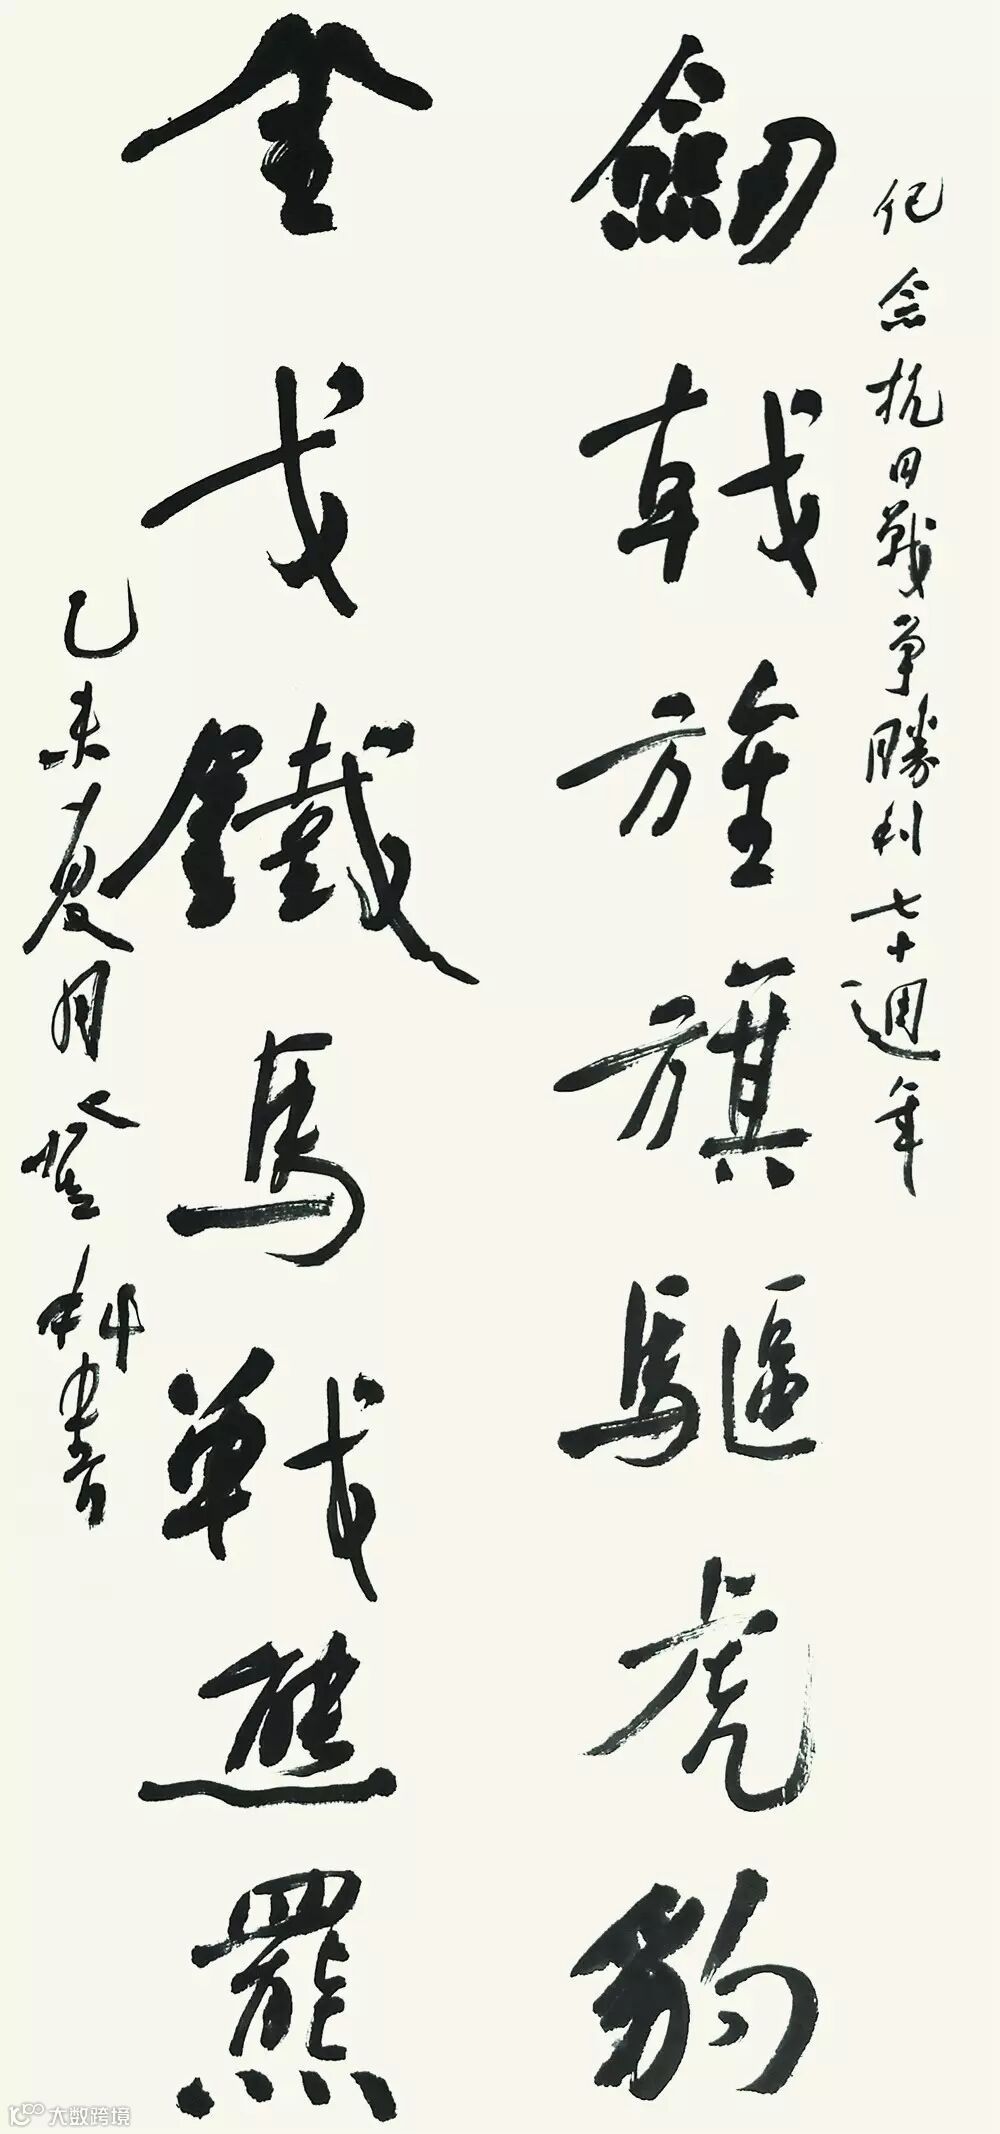 纪念抗日戰争勝利七十週年
劍戟旌旗驅虎豹
金戈鐵馬戰熊羆
乙未夏月登科書
大数跨境